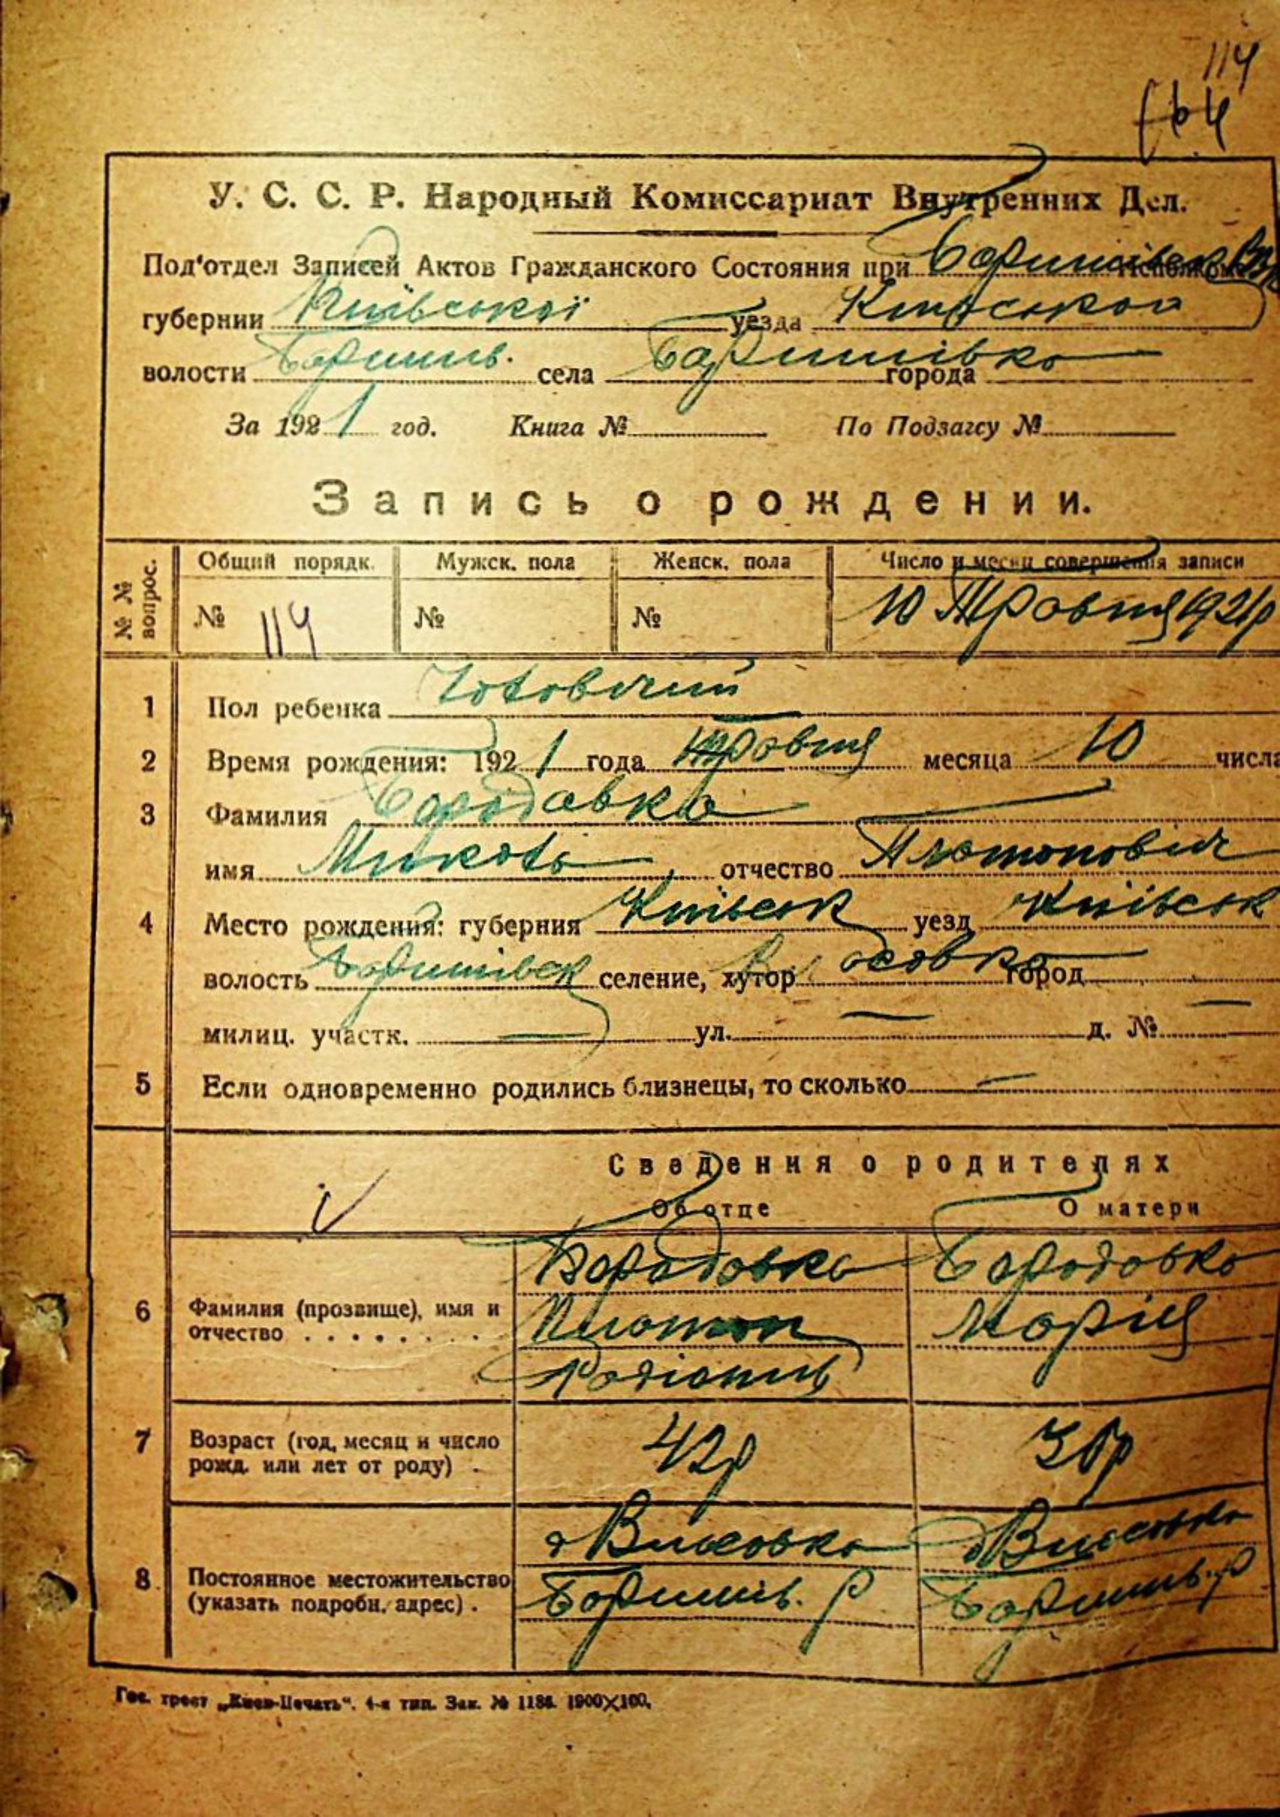 114
У. С. С. Р. Народный Комиссариат Внутренних Дел.
Под'отдел Записей Актов Гражданского Состояния при Баришівськ
губернии Київської уезда Київського
волости Баришів. села Баришівка города
За 1921 год. Книга № По Подзагсу №
Запись о рождении.
№ № вопрос. Общий порядк. Мужск. пола Женск. пола Число и месяц совершения записи
№ 114 № № 10 Травня 1921р
1 Пол ребенка Чоловічий
2 Время рождения: 1921 года Травня месяца 10 числа
3 Фамилия Бородавка
имя Микола отчество Платонович
4 Место рождения: губерния Київськ уезд Київськ
волость Баришівськ селение, хутор город
милиц. участк. — ул. — д. № —
5 Если одновременно родились близнецы, то сколько —
Сведения о родителях
Об отце О матери
6 Фамилия (прозвище), имя и отчество
Бородовка Бородовка
Платон Марія
7 Возраст (год, месяц и число рожд. или лет от роду) 42р 30р
8 Постоянное местожительство (указать подробн. адрес)
Власовка Власовка
Баришів. р Баришів. р
Гос. трест „Киев-Печать“. 4-я тип. Зак. № 1186. 1900×100.